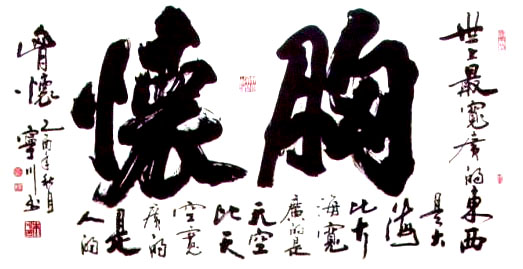 胸懷
世上最寬廣的東西
是大
海
比大
海寬
廣的是
天空
比天
空寬
廣的
是
人的
胷懷
乙酉年秋月
寧川書